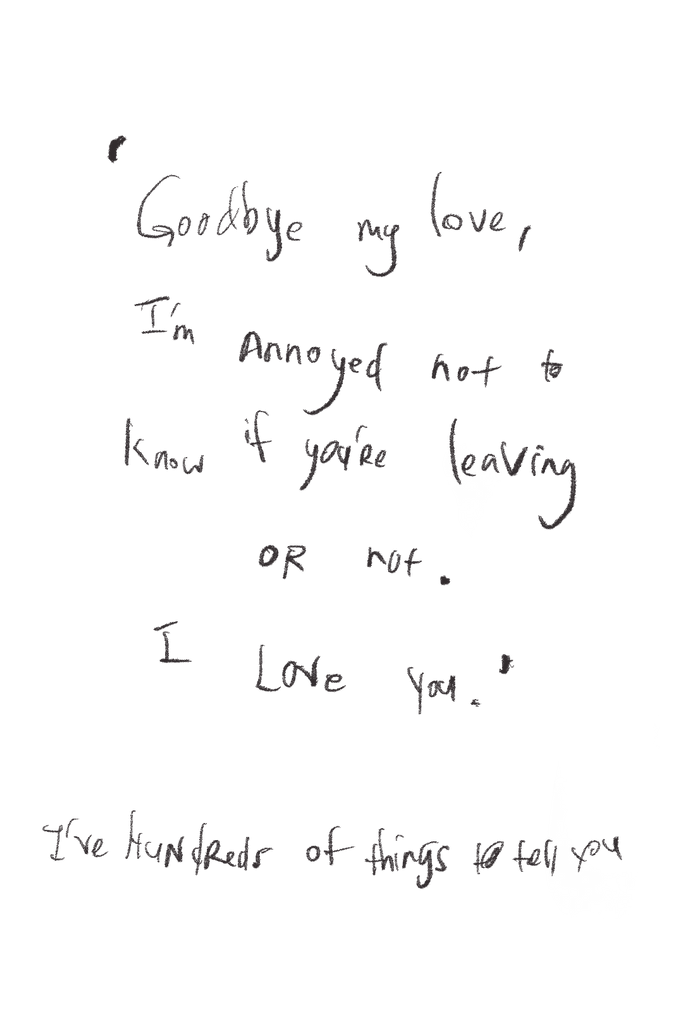 'Goodbye my love,
I'm Annoyed not to
know if you're leaving
OR not.
I Love you.'
I've HUNdReds of things to tell you